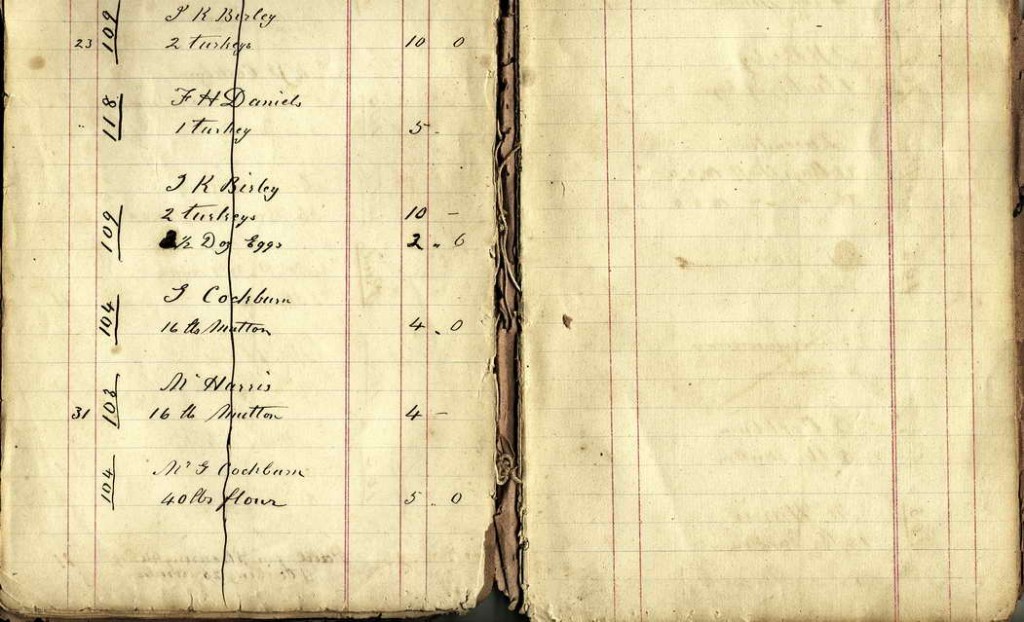 109 J K Birley
23 2 turkeys 10 0
118 F H Daniels
1 turkey 5 -
J K Birley
109 2 turkeys 10 -
2½ Doz Eggs 2 - 6
104 G Cockburn
16 lbs Mutton 4 - 0
103 Mr Harris
31 16 lb Mutton 4 -
104 Mr G Cockburn
40 lbs flour 5 - 0